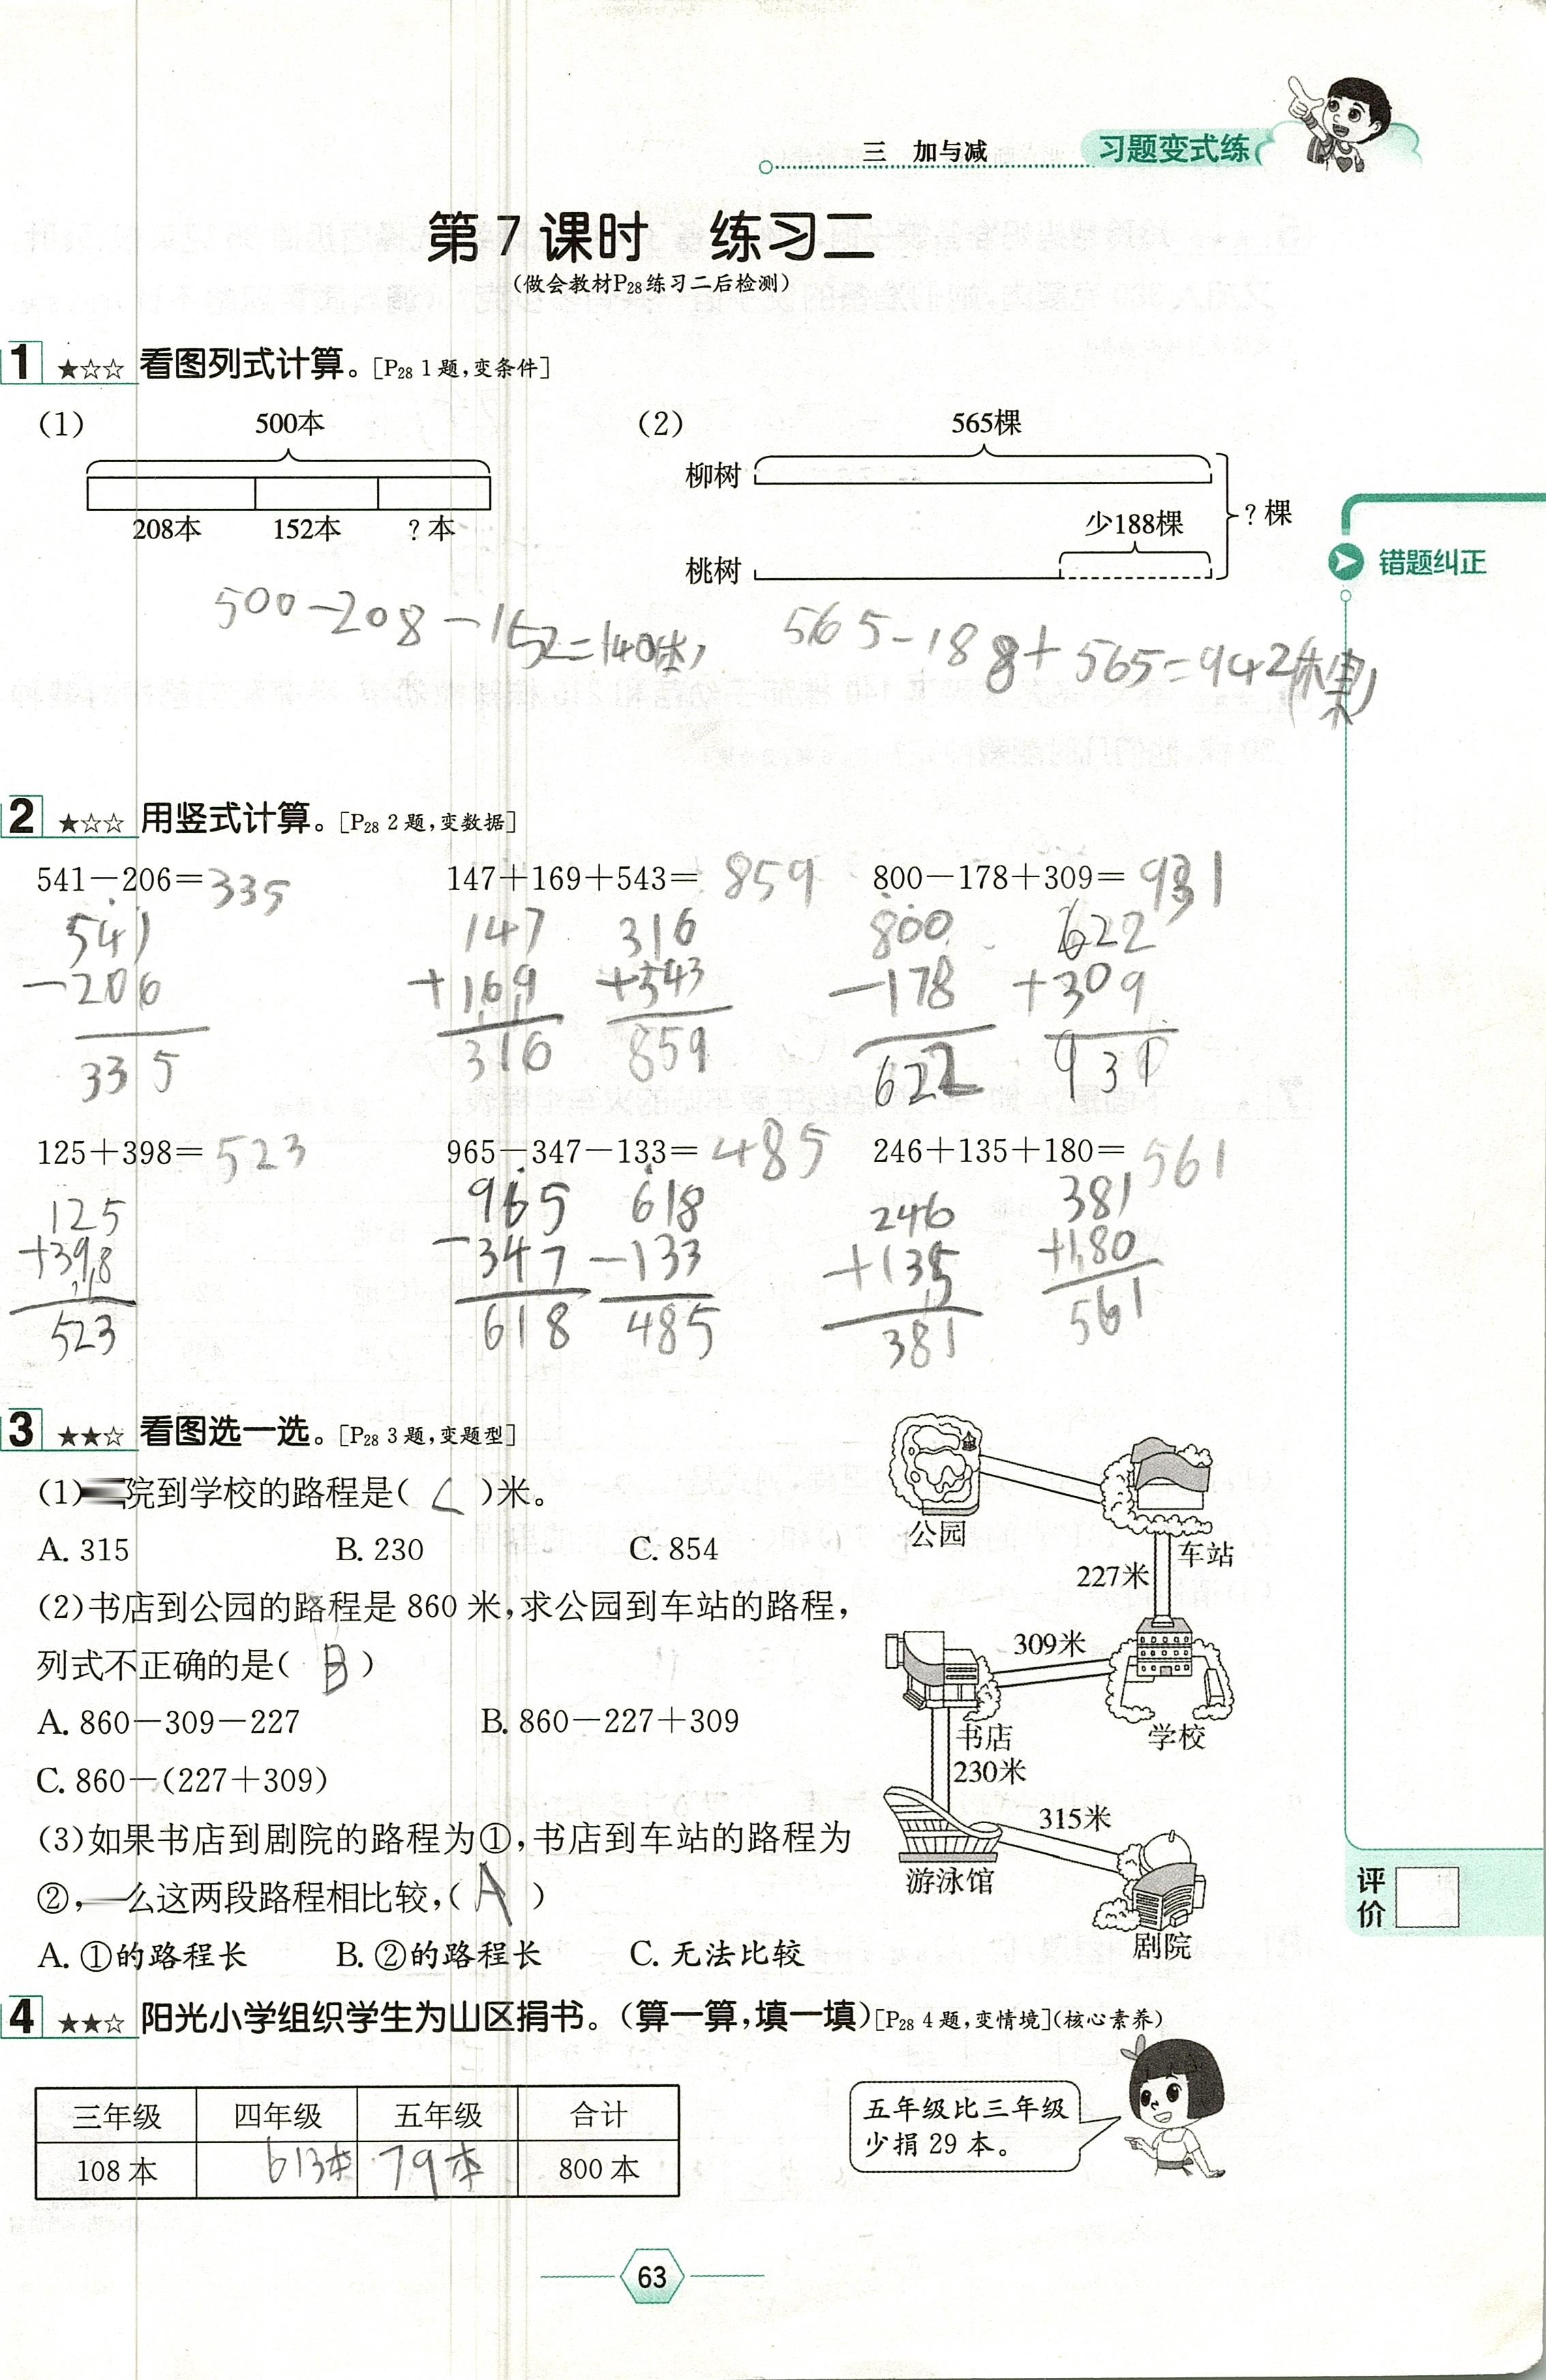 三 加与减 习题变式练
第7课时 练习二
(做会教材P28练习二后检测)
1 ★☆☆ 看图列式计算。[P28 1题,变条件]
(1) 500本
208本 152本 ?本
500-208-152=140(本)
(2) 565棵
柳树
少188棵
?棵
桃树
565-188+565=942(棵)
错题纠正
2 ★☆☆ 用竖式计算。[P28 2题,变数据]
541-206=335 147+169+543=859 800-178+309=931
541 147 316 800 622
-206 +169 +543 -178 +309
335 316 859 622 931
125+398=523 965-347-133=485 246+135+180=561
125 965 618 246 381
+398 -347 -133 +135 +180
523 618 485 381 561
3 ★★☆ 看图选一选。[P28 3题,变题型]
(1) 院到学校的路程是( C )米。
A. 315 B. 230 C. 854
(2)书店到公园的路程是860米,求公园到车站的路程,
列式不正确的是( B )
A. 860-309-227 B. 860-227+309
C. 860-(227+309)
(3)如果书店到剧院的路程为①,书店到车站的路程为
②, 么这两段路程相比较,( A )
A. ①的路程长 B. ②的路程长 C. 无法比较
公园
车站
227米
309米
书店
学校
230米
315米
游泳馆
剧院
评价
4 ★★☆ 阳光小学组织学生为山区捐书。(算一算,填一填)[P28 4题,变情境](核心素养)
三年级 四年级 五年级 合计
108本 613本 79本 800本
五年级比三年级
少捐29本。
63